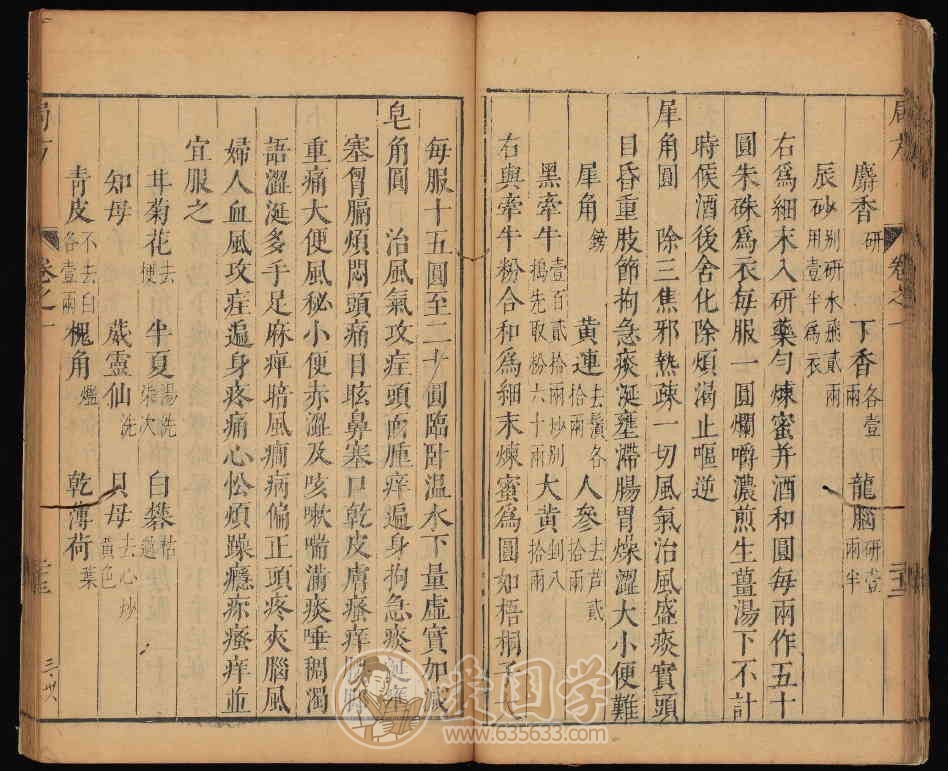 麝香研 丁香各壹兩 龍腦研壹兩半
辰砂別研水飛貳兩用壹半爲衣
右爲細末入研藥勻煉蜜并酒和圓每兩作五十
圓朱硃爲衣每服一圓爛嚼濃煎生薑湯下不計
時候酒後含化除煩渴止嘔逆
犀角圓 除三焦邪熱疎一切風氣治風盛痰實頭
目昏重肢節拘急痰涎壅滯腸胃燥澀大小便難
犀角鎊 黃連去鬚各拾兩 人參去芦貳拾兩
黑牽牛壹百貳拾兩炒別搗先取粉六十兩 大黃剉八拾兩
右與牽牛粉合和爲細末煉蜜爲圓如梧桐子大
每服十五圓至二十圓臨卧温水下量虛實加減
皂角圓 治風氣攻疰頭面腫痒遍身拘急痰涎壅
塞胷膈煩悶頭痛目眩鼻塞口乾皮膚瘙痒腰脚
重痛大便風秘小便赤澀及咳嗽喘滿痰唾稠濁
語澀涎多手足麻痺暗風癎病偏正頭疼夾腦風
婦人血風攻疰遍身疼痛心忪煩躁癮疹瘙痒並
宜服之
甘菊花去梗 半夏湯洗柒次 白礬枯過
知母 葳靈仙洗 貝母去心炒黃色
青皮不去白各壹兩 槐角爁 乾薄荷葉
局方 卷之一
三·廿八
爱国学
www.635633.com